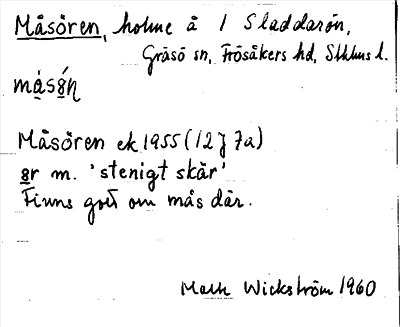 Måsören, holme å 1 Sladdarön,
Gräsö sn, Frösåkers hd, Sthlms l.
Måsören ek 1955 (12J 7a)
m. 'stenigt skär'
Finns gott om mås där.
Math Wickström 1960